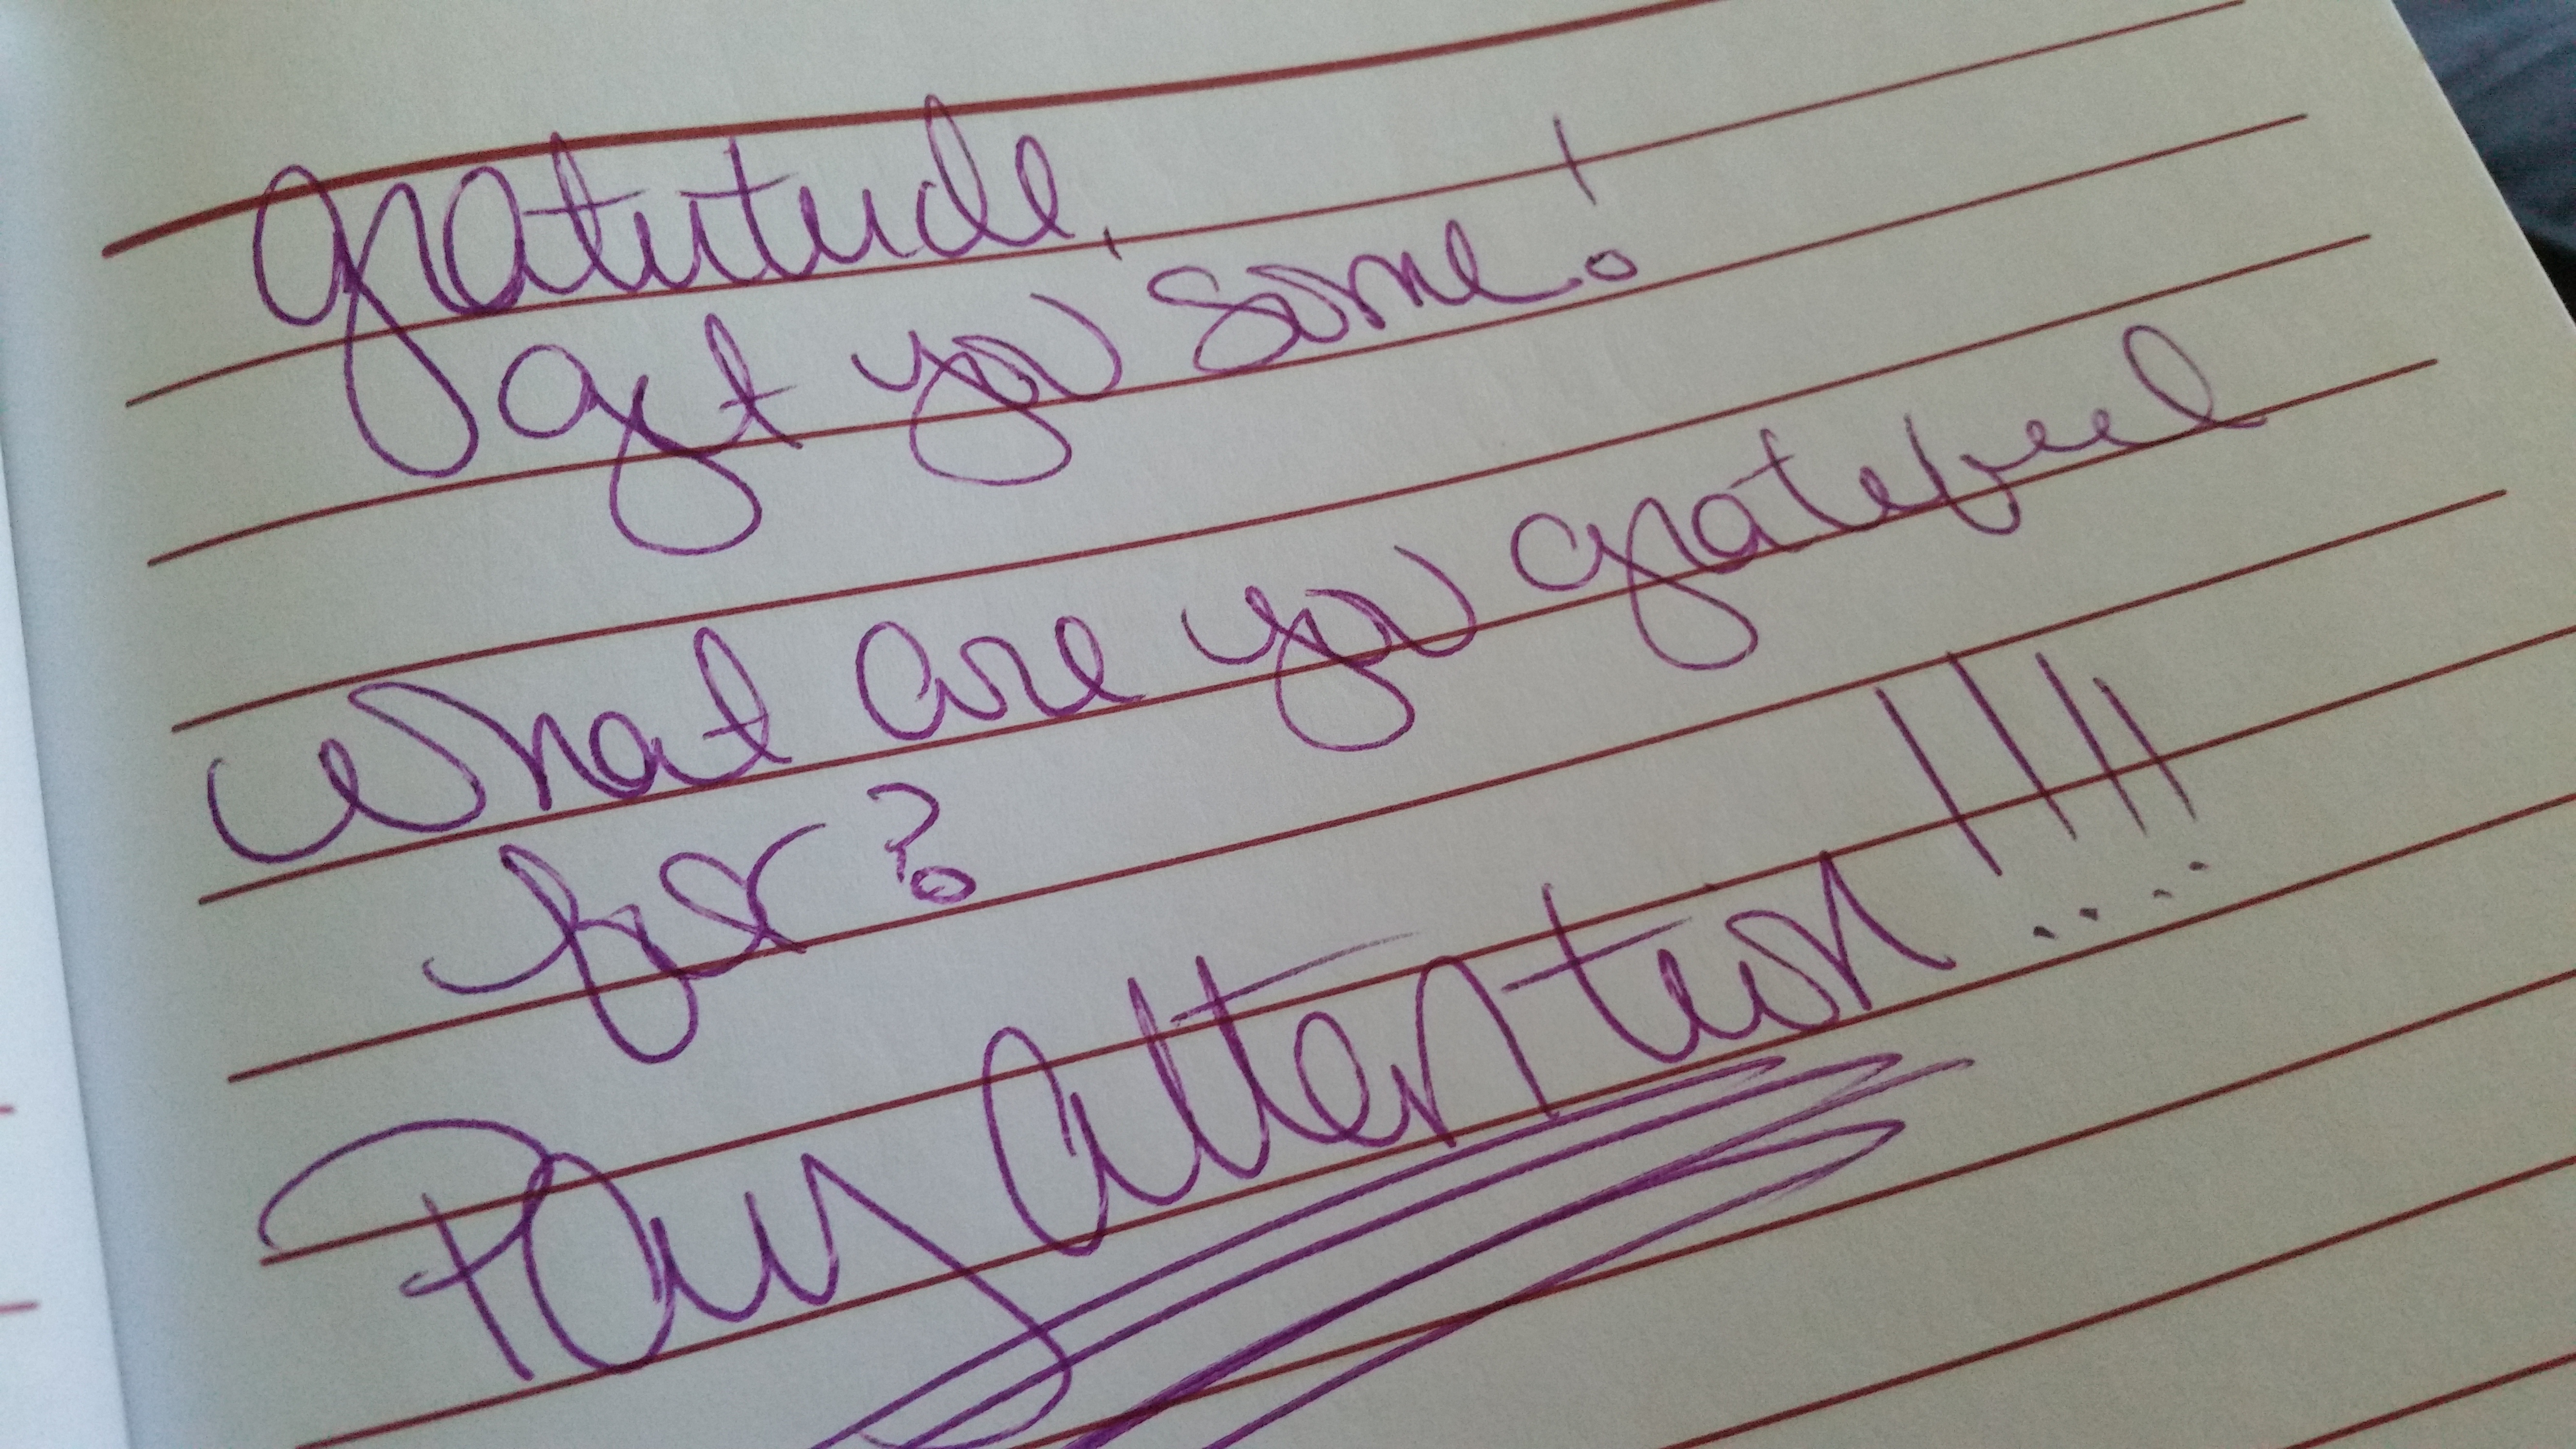 gratitude,
get you some!
What are you grateful
for?
Pay attention!!!!